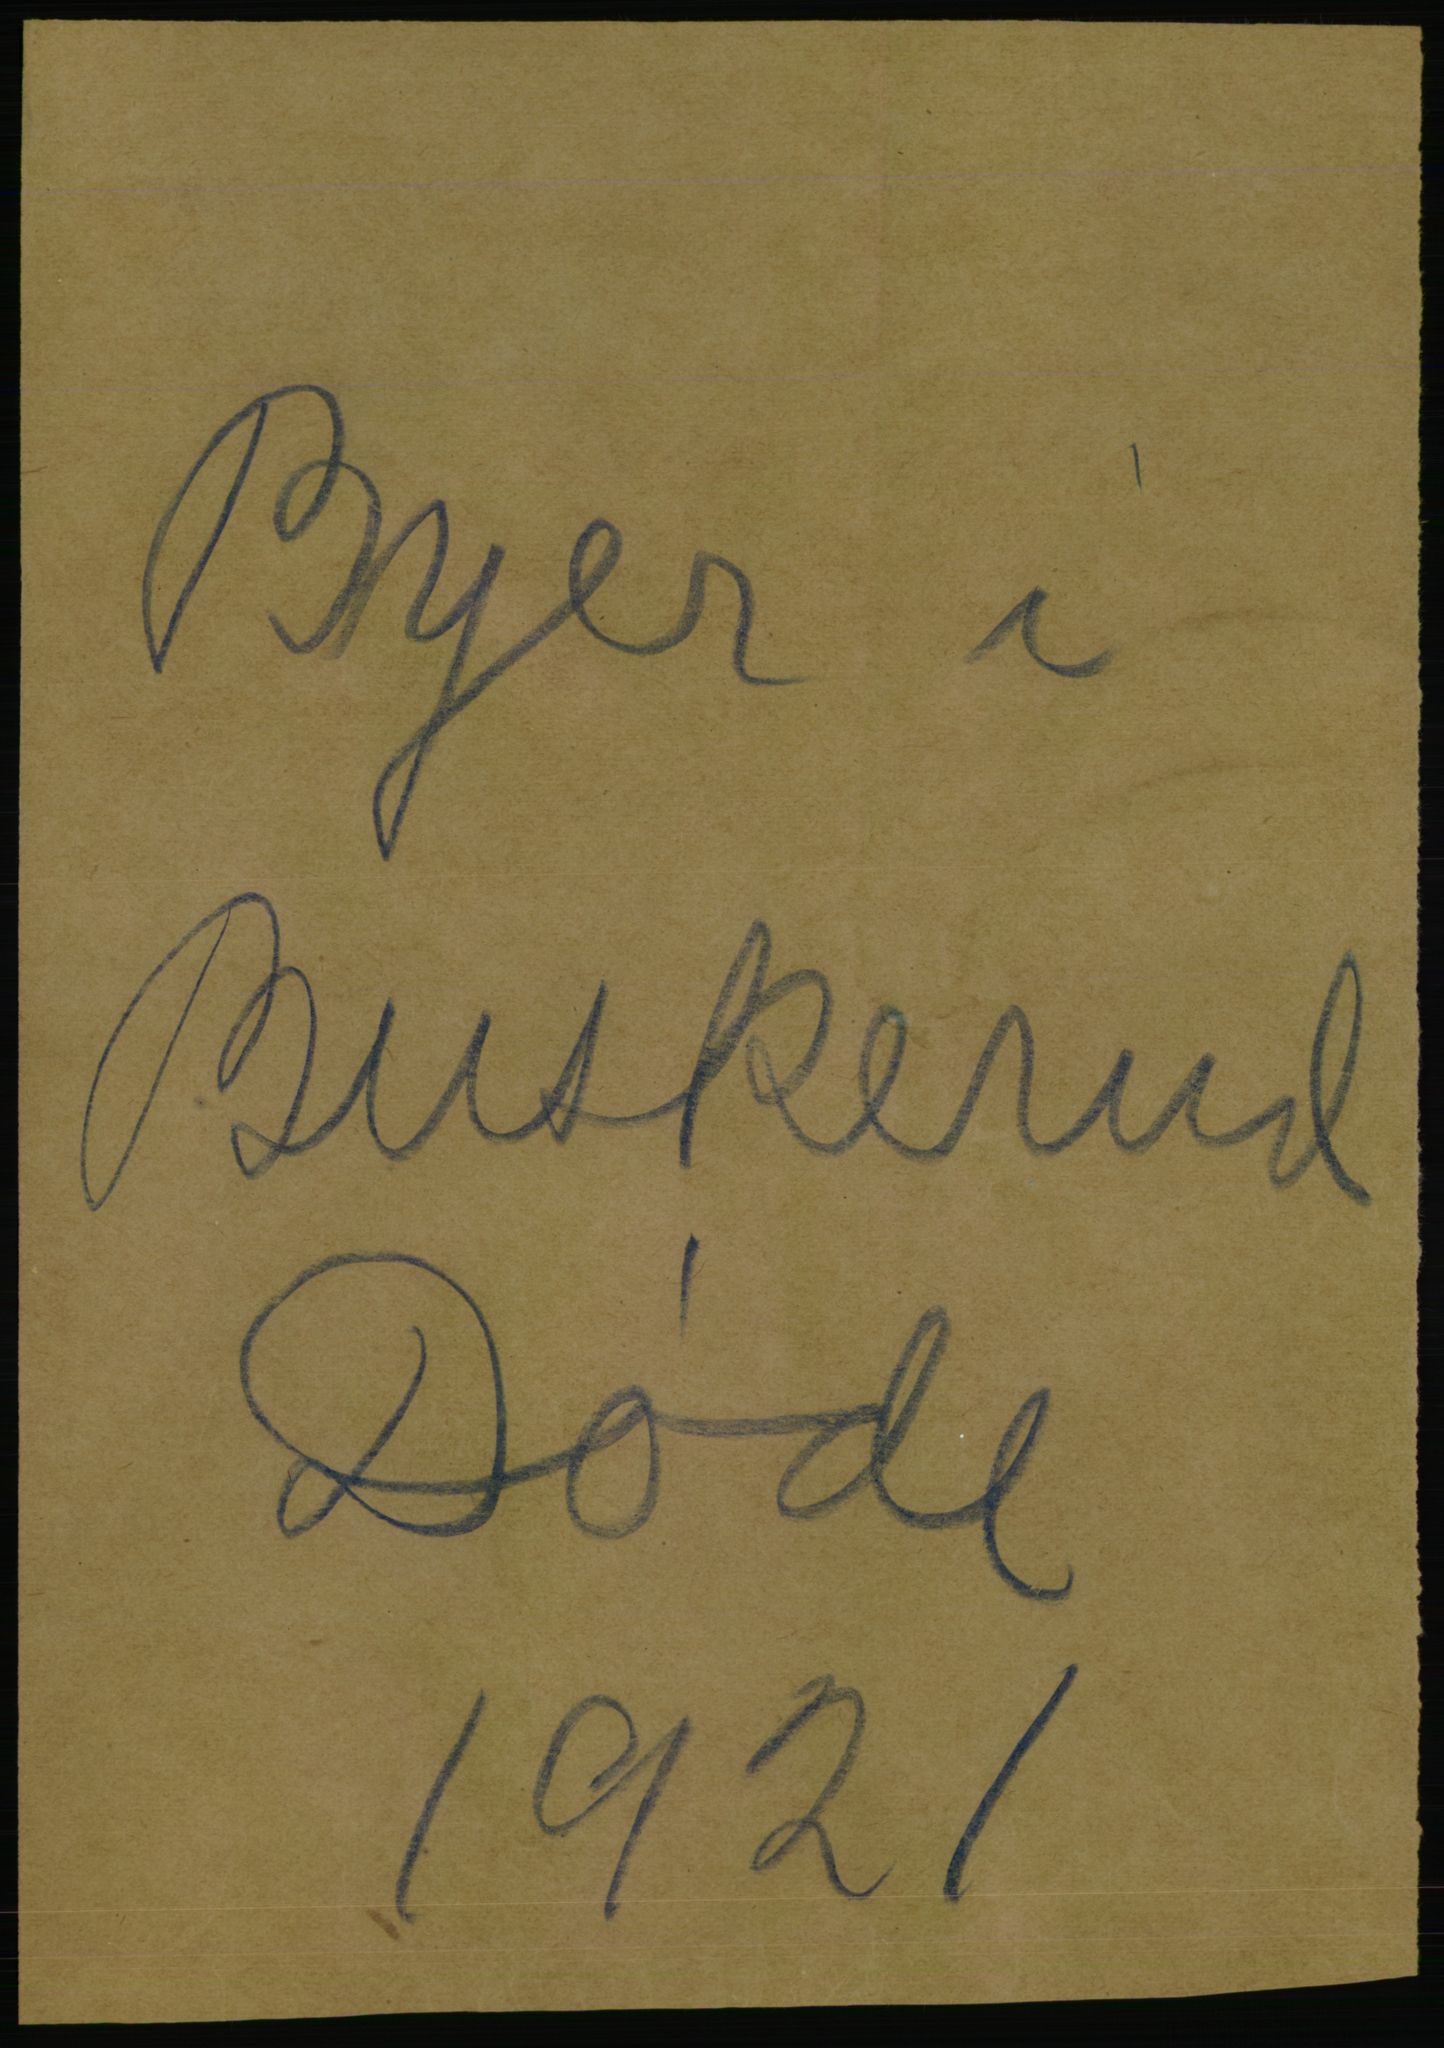 Byer i
Buskerud
Døde
1921